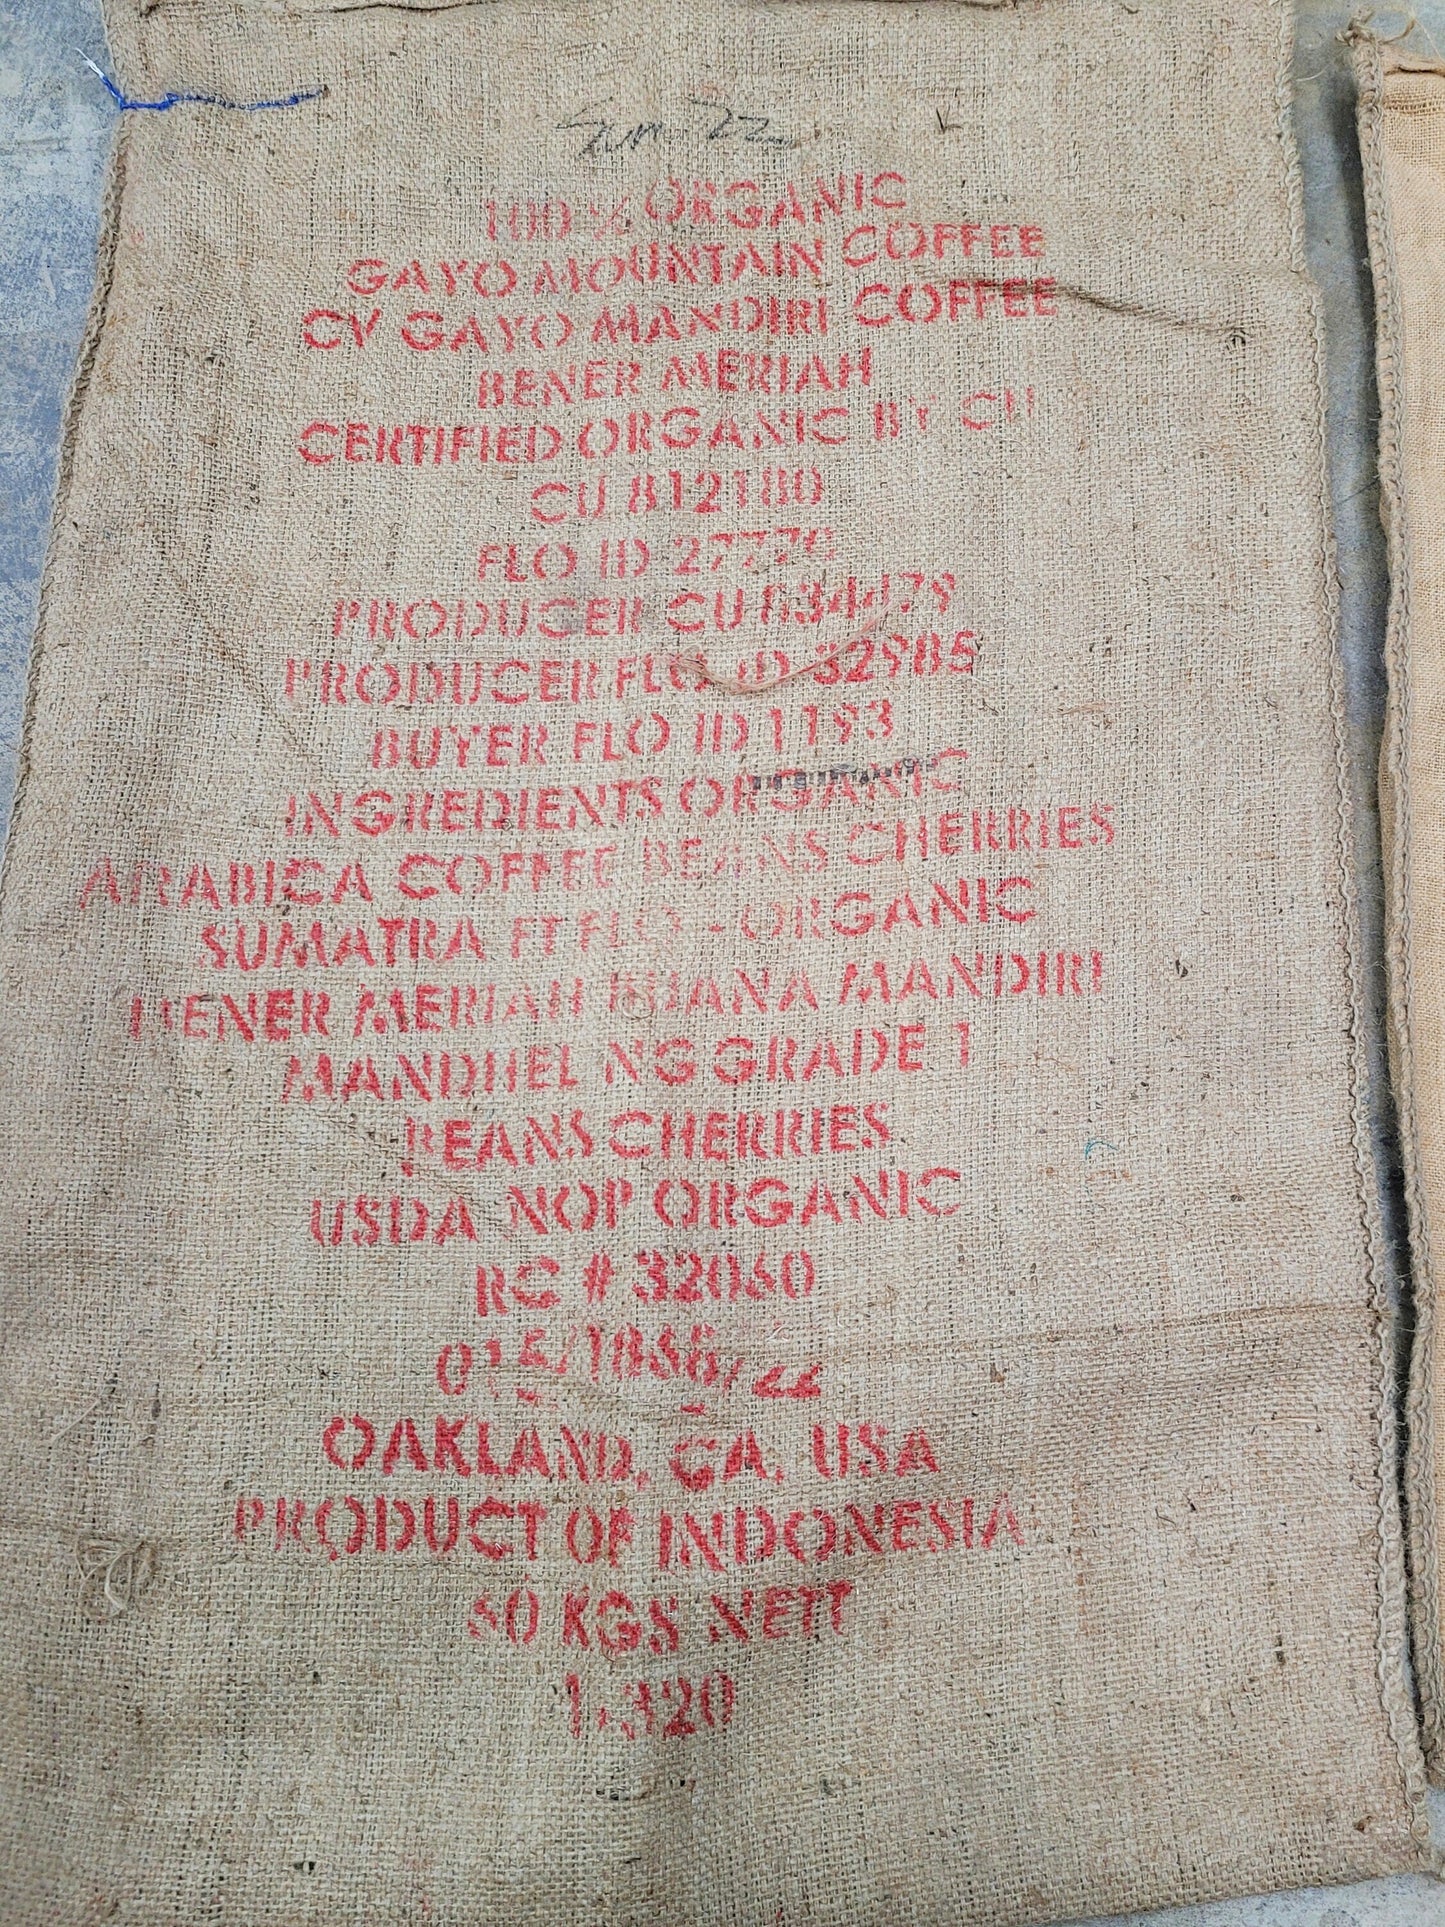 100% ORGANIC
GAYO MOUNTAIN COFFEE
CV GAYO MANDIRI COFFEE
BENER MERIAH
CERTIFIED ORGANIC BY CU
CU 812180
FLO ID
PRODUCER CU 834479
PRODUCER FLO ID 32985
BUYER FLO ID 1193
INGREDIENTS ORGANIC
ARABICA COFFEE BEANS CHERRIES
SUMATRA FT FLO - ORGANIC
BENER MERIAH MANDIRI
MANDHEL NG GRADE 1
BEANS CHERRIES
USDA NOP ORGANIC
RC # 32060
OAKLAND, CA, USA
PRODUCT OF INDONESIA
60 KGS NETT